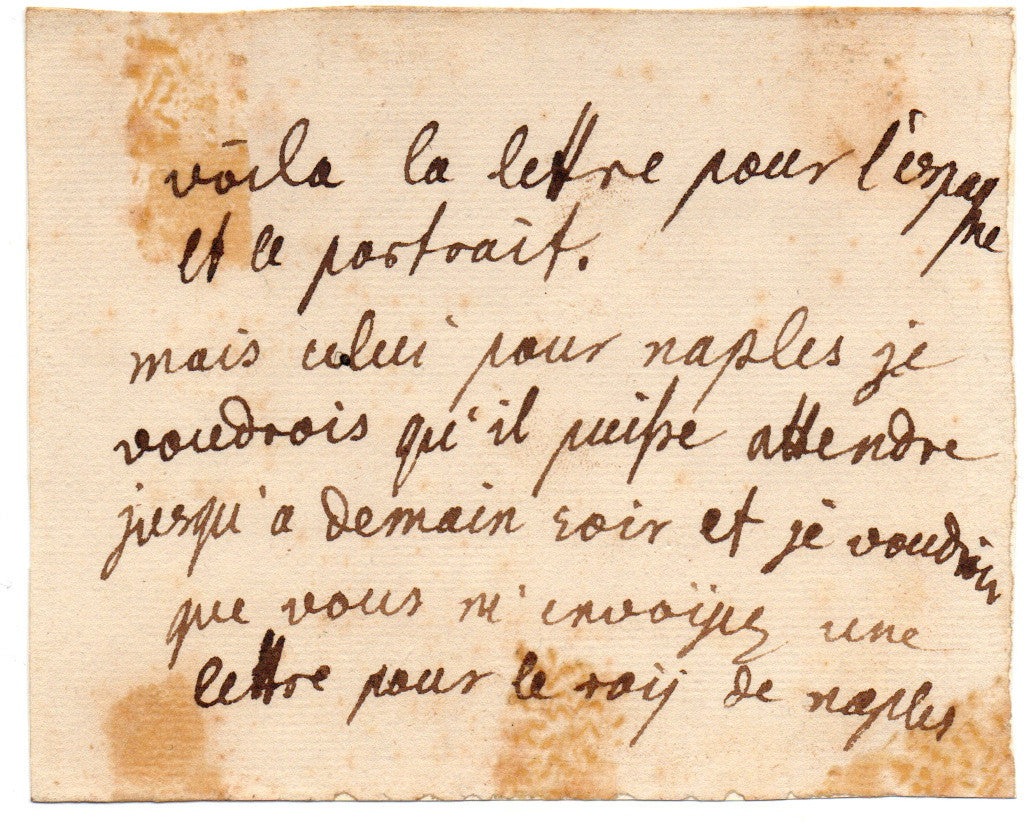 voila la lettre pour l'espagne
et le portrait.
mais celui pour naples je
voudrois qu'il puisse attendre
jusqu'a demain soir et je voudrois
que vous m'envoÿiez une
lettre pour le roÿ de naples